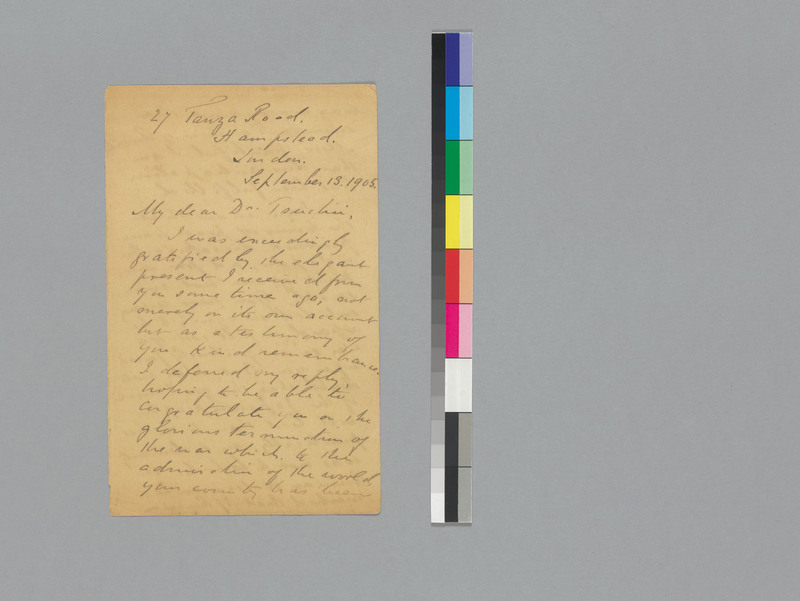 27 Tanza Road.
Hampstead.
London.
September 13. 1905.
My dear Dr. Tsuchii,
I was exceedingly
gratified by the elegant
present I received from
you some time ago, not
merely on its own account
but as a testimony of
your kind remembrance.
I deferred my reply,
hoping to be able to
congratulate you on the
glorious termination of
the war which, to the
admiration of the world,
your country has been